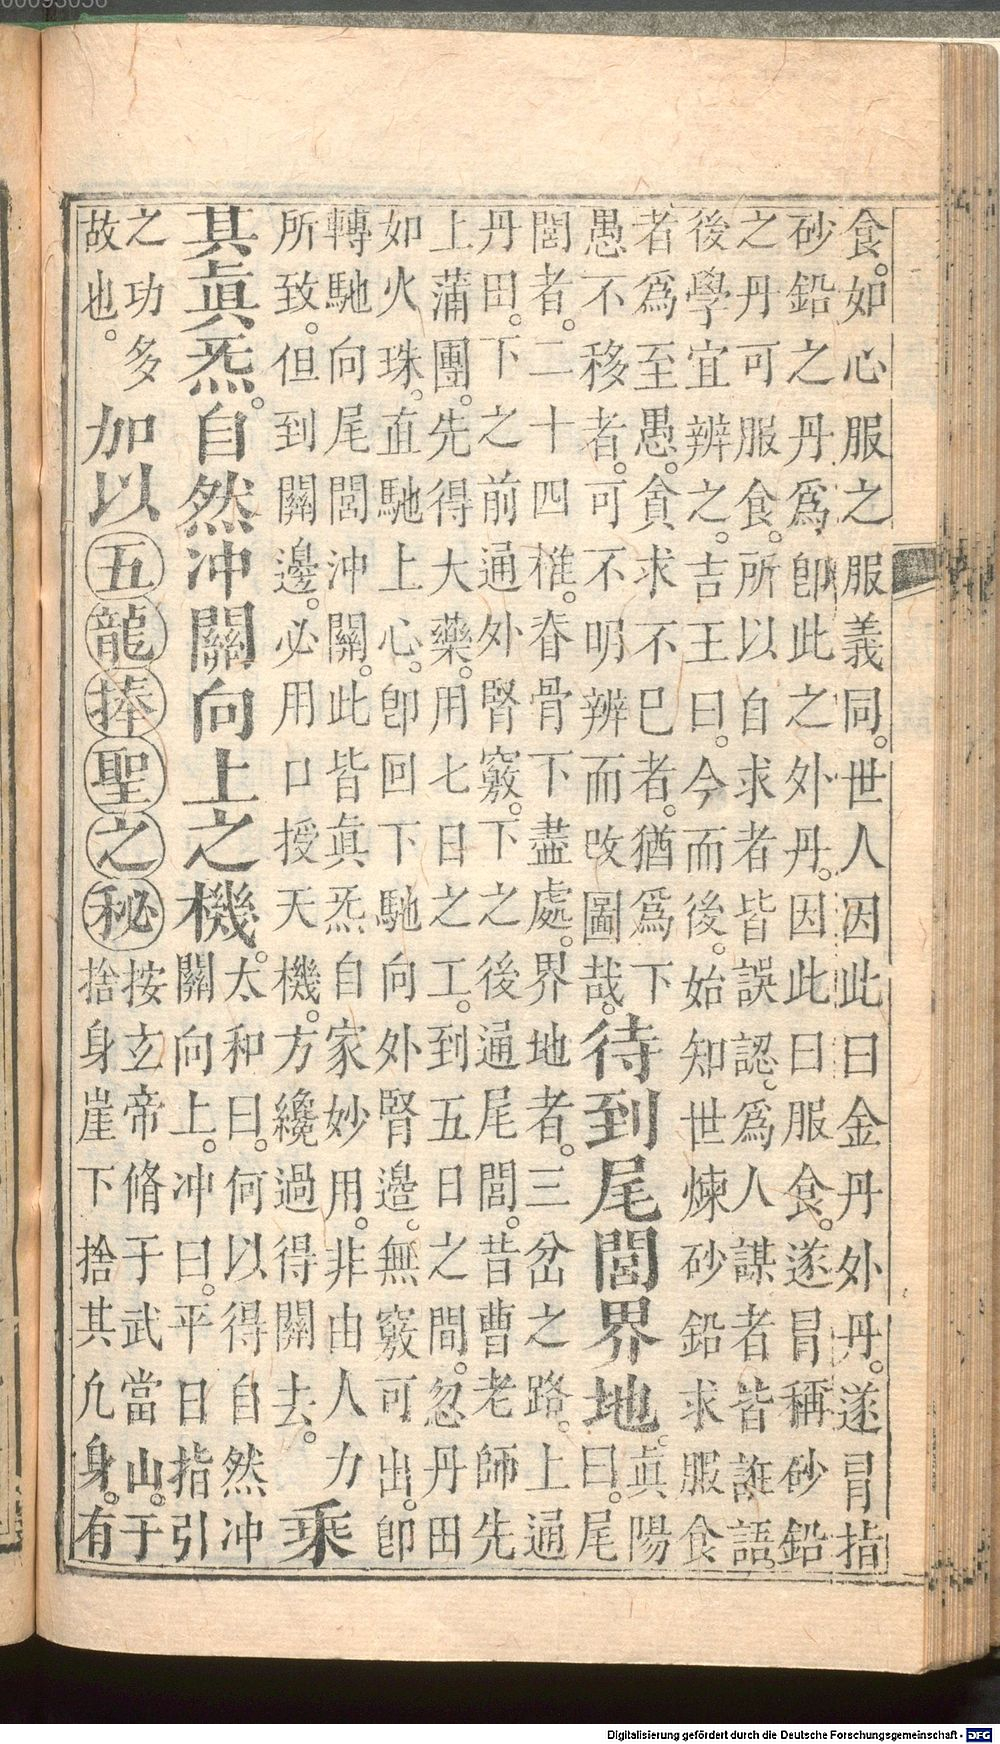 00093056
食。如心服之服義同。世人因此曰金丹外丹。遂冒指
砂鉛之丹爲卽此之外丹。因此曰服食。遂冒稱砂鉛
之丹可服食。所以自求者皆誤認。爲人謀者皆誑語。
後學宜辨之。吉王曰。今而後。始知世煉砂鉛求服食
者爲至愚。貪求不巳者。猶爲下
愚不移者。可不明辨而改圖哉。待到尾閭界地。眞陽曰。尾
閭者。二十四椎。脊骨下盡處。界地者。三岔之路。上通
丹田。下之前通外腎竅。下之後通尾閭。昔曹老師先
上蒲團。先得大藥。用七日之工。到五日之間。忽丹田
如火珠。直馳上心。卽回下馳向外腎邊。無竅可出。卽
轉馳向尾閭沖關。此皆眞炁自家妙用。非由人力
所致。但到關邊。必用口授天機。方纔過得關去。乘
其眞炁。自然冲關向上之機。太和曰。何以得自然冲
關向上。冲曰。平日指引
之功多
故也。加以五龍捧聖之秘按玄帝脩于武當山。于
捨身崖下捨其凢身。有
Digitalisierung gefördert durch die Deutsche Forschungsgemeinschaft - DFG